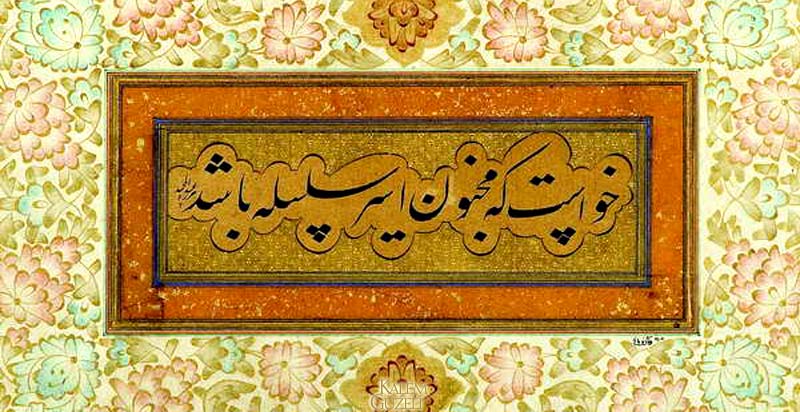 خواست که مجنون اسیر سلسله باشد
KALEM
GUZELI